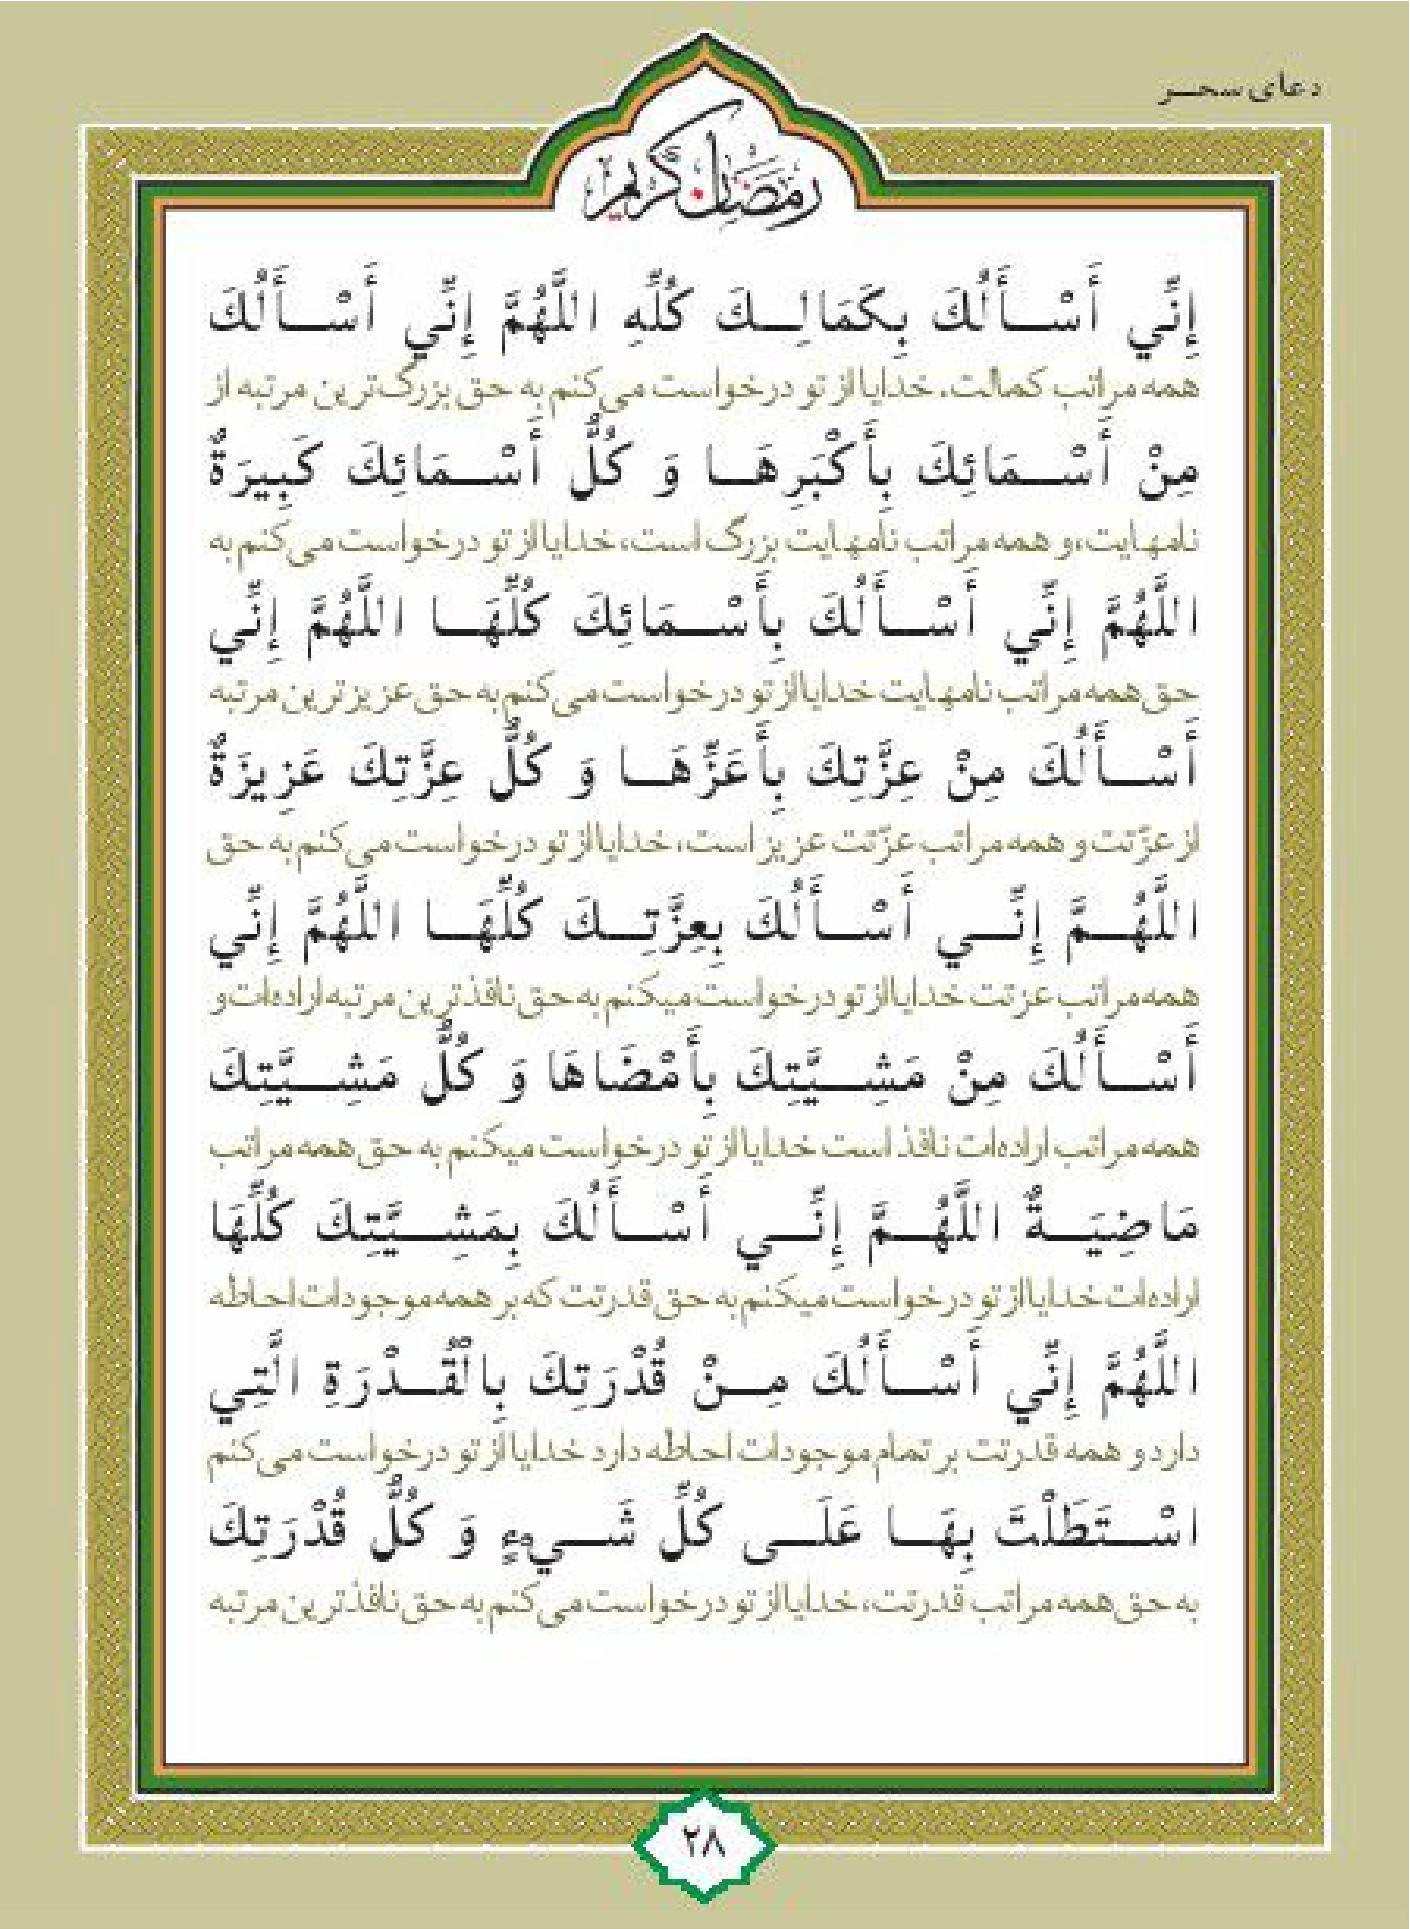 دعای سحر
رمضان كريم
إِنِّي أَسْأَلُكَ بِكَمَالِكَ كُلِّهِ اللَّهُمَّ إِنِّي أَسْأَلُكَ
همه مراتب کمالت، خدایا از تو درخواست می‌کنم به حق بزرگ‌ترین مرتبه از
مِنْ أَسْمَائِكَ بِأَكْبَرِهَا وَ كُلُّ أَسْمَائِكَ كَبِيرَةٌ
نامهایت، و همه مراتب نامهایت بزرگ است، خدایا از تو درخواست می‌کنم به
اللَّهُمَّ إِنِّي أَسْأَلُكَ بِأَسْمَائِكَ كُلِّهَا اللَّهُمَّ إِنِّي
حق همه مراتب نامهایت خدایا از تو درخواست می‌کنم به حق عزیزترین مرتبه
أَسْأَلُكَ مِنْ عِزَّتِكَ بِأَعَزِّهَا وَ كُلُّ عِزَّتِكَ عَزِيزَةٌ
از عزّتت و همه مراتب عزّتت عزیز است، خدایا از تو درخواست می‌کنم به حق
اللَّهُمَّ إِنِّي أَسْأَلُكَ بِعِزَّتِكَ كُلِّهَا اللَّهُمَّ إِنِّي
همه مراتب عزتت خدایا از تو درخواست میکنم به حق نافذترین مرتبه اراده‌ات و
أَسْأَلُكَ مِنْ مَشِيَّتِكَ بِأَمْضَاهَا وَ كُلُّ مَشِيَّتِكَ
همه مراتب اراده‌ات نافذ است خدایا از تو درخواست میکنم به حق همه مراتب
مَاضِيَةٌ اللَّهُمَّ إِنِّي أَسْأَلُكَ بِمَشِيَّتِكَ كُلِّهَا
اراده‌ات خدایا از تو درخواست میکنم به حق قدرتت که بر همه موجودات احاطه
اللَّهُمَّ إِنِّي أَسْأَلُكَ مِنْ قُدْرَتِكَ بِالْقُدْرَةِ الَّتِي
دارد و همه قدرتت بر تمام موجودات احاطه دارد خدایا از تو درخواست می‌کنم
اسْتَطَلْتَ بِهَا عَلَى كُلِّ شَيءٍ وَ كُلُّ قُدْرَتِكَ
به حق همه مراتب قدرتت، خدایا از تو درخواست می‌کنم به حق نافذترین مرتبه
۲۸